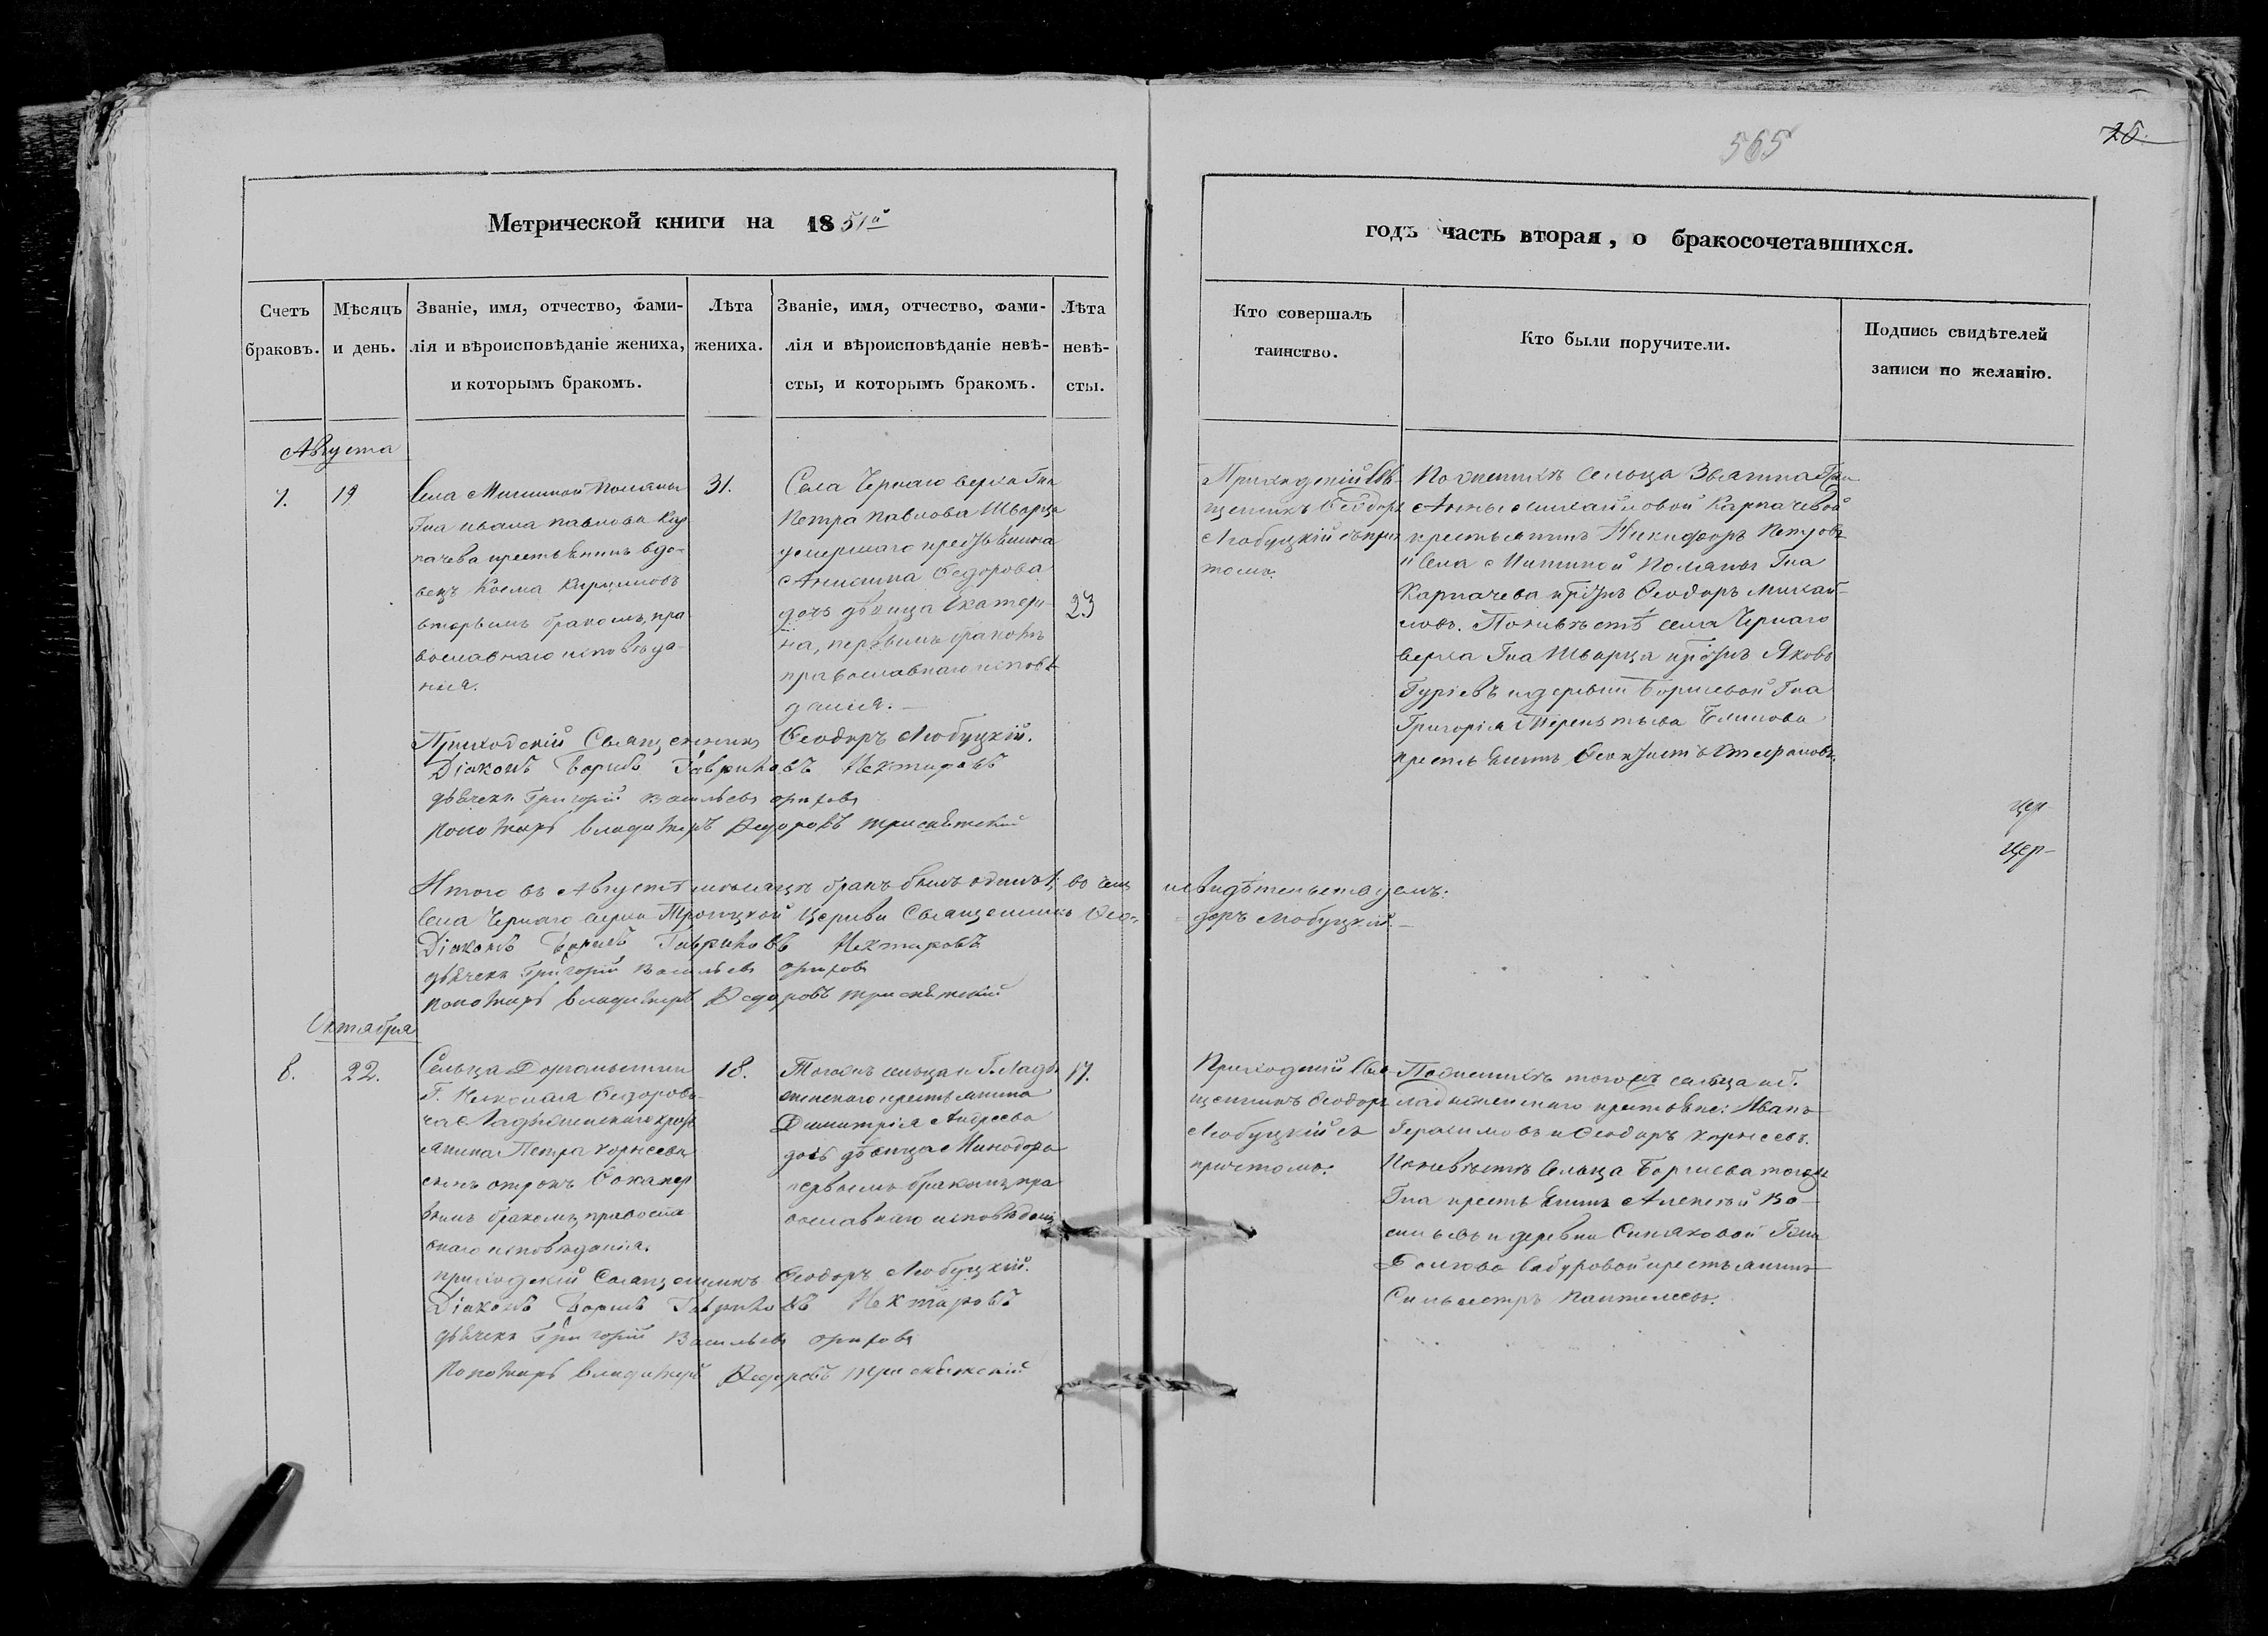 565
26.
Метрической книги на 1851й
годъ часть вторая, о бракосочетавшихся.
Счетъ браковъ.
Мѣсяцъ и день.
Званіе, имя, отчество, фами-
лія и вѣроисповѣданіе жениха,
и которымъ бракомъ.
Лѣта жениха.
Званіе, имя, отчество, фами-
лія и вѣроисповѣданіе невѣ-
сты, и которымъ бракомъ.
Лѣта невѣ-
сты.
Кто совершалъ
таинство.
Кто были поручители.
Подпись свидѣтелей
записи по желанію.
Августа
7.
19
Села Мишиной Поляны
Гна Ивана Павлова Кар
пачева крестьянинъ вдо-
вецъ Косма Кириловъ
вторымъ бракомъ, пра-
вославнаго исповѣда-
нія.
31.
Села Чернаго верха Гна
Петра Павлова Шварца
умершаго крестьянина
Анисима Федорова
дочь дѣвица Екатери-
на, первымъ бракомъ
православнаго исповѣ-
данія.
23
Приходскій Свя-
щенникъ Ѳеодоръ
Любуцкій съ прич
томъ.
По женихѣ сельца
Анны Михайловой Карпачевой
крестьянинъ Никифоръ Петровъ
и села Мишиной Поляны Гна
Карпачева Ѳеодоръ Михай-
ловъ. По невѣстѣ села Чернаго
верха Гна Шварца Яковъ
Гуріевъ и деревни Борисевой Гна
Григорія Терентьева
крестьянинъ Стефановъ.
Приходскій Священникъ Ѳеодоръ Любуцкій.
Діаконъ Борисъ Гавриловъ Нектаровъ
дьячекъ Григорій Васильевъ Ориховъ
Пономарь Владимиръ Федоровъ
цер-
цер-
Итого въ Августѣ мѣсяцѣ бракъ былъ одинъ 1, во чемъ и свидѣтельствуемъ:
Села Чернаго верха Троицкой Церкви Священникъ Ѳео-
доръ Любуцкій.
Діаконъ Борисъ Гавриловъ Нектаровъ
дьячекъ Григорій Васильевъ Ориховъ
Пономарь Владимиръ Федоровъ
Октября
8.
22.
Сельца
Г. Николая Федорови-
ча Ладыженскаго крестъ
янина Петра Корнеева
сынъ отрокъ Фока пер
вымъ бракомъ, правосла-
внаго исповѣданія.
18.
Тогожъ сельца и Г. Лады
женскаго крестьянина
Димитрія Андреева
дочь дѣвица Минодора
первымъ бракомъ, пра
вославнаго исповѣданія
17.
Приходскій Свя-
щенникъ Ѳеодоръ
Любуцкій съ
причтомъ.
По женихѣ тогожъ сельца и Г.
Ладыженскаго крестьяне: Иванъ
Герасимовъ и Ѳеодоръ Корнеевъ.
По невѣстѣ сельца тогожъ
Гна крестьянинъ Алексѣй Ва-
сильевъ и деревни Синяковой Гжи
крестьянинъ
Сильвестръ Пантелеевъ.
Приходскій Священникъ Ѳеодоръ Любуцкій.
Діаконъ Борисъ Гавриловъ Нектаровъ
дьячекъ Григорій Васильевъ Ориховъ
Пономарь Владимиръ Федоровъ